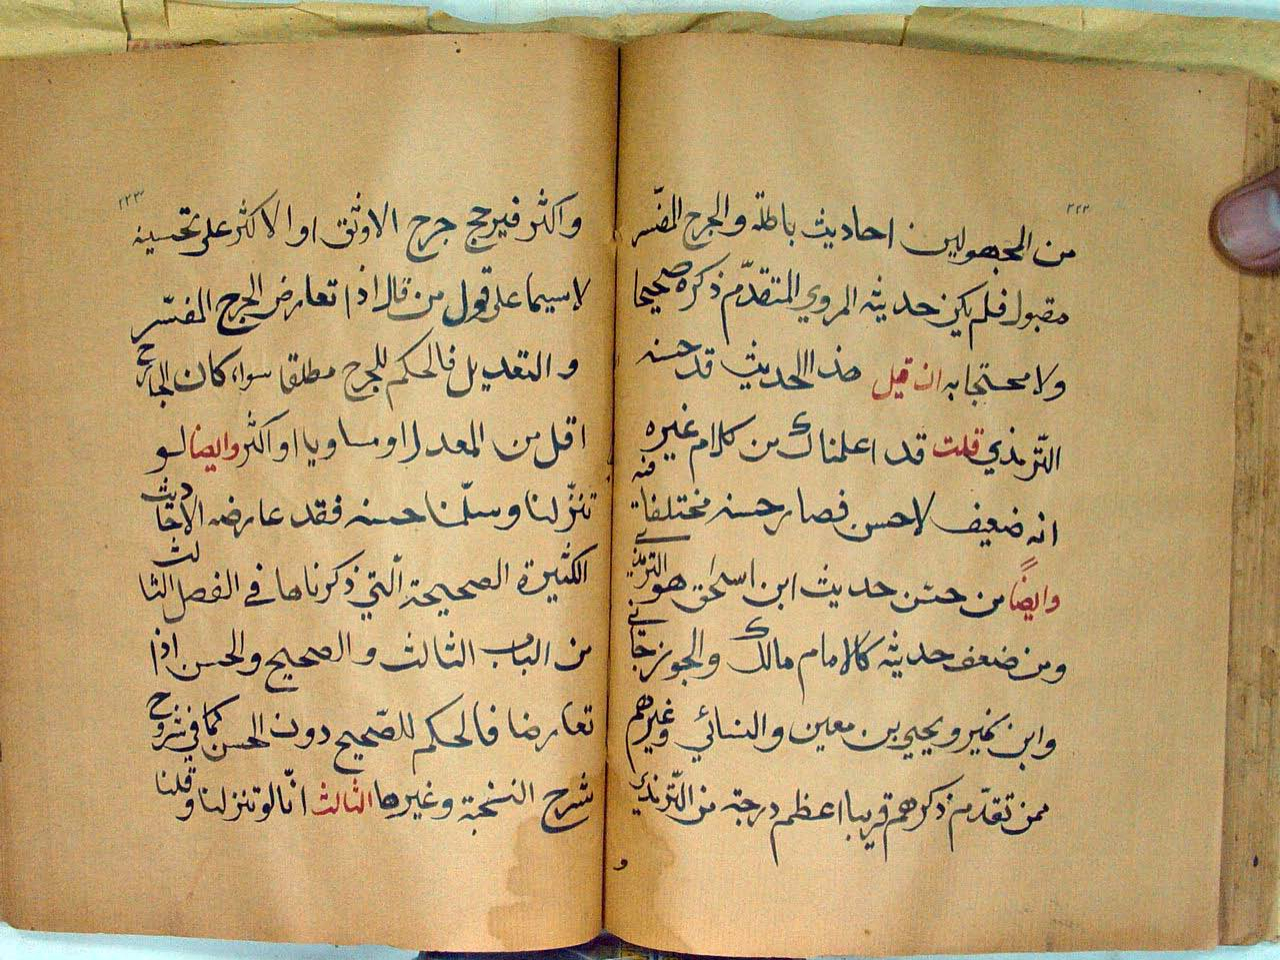 ٢٢٢
من المجهولين احاديث باطلة والجرح المفسّر
مقبول فلم يكن حديثه المروي المتقدّم ذكره صحيحا
ولا محتجا به ان قيل هذا الحديث قد حسنه
التّرمذي قلت قد اعلمناك من كلام غيره
انه ضعيف لا حسن فصار حسنه مختلفا فيه
وايضاً من حسّن حديث ابن اسحاق هو الترمذي
ومن ضعف حديثه كالامام مالك والجوزجاني
وابن نمير ويحيي بن معين والنسائي وغيرهم
ممن تقدّم ذكرهم قريبا اعظم درجة من التّرمذي
و
٢٢٣
واكثر فيرجح جرح الاوثق او الاكثر على تحسينه
لاسيما على قول من قال اذا تعارض الجرح المفسّر
والتعديل فالحكم للجرح مطلقا سواء كان الجارح
اقل من المعدل او مساويا او اكثر وايضا لو
تنزّلنا وسلّمنا حسنه فقد عارضه الاحاديث
الكثيرة الصحيحة الّتي ذكرناها في الفصل الثالث
من الباب الثالث والصحيح والحسن اذا
تعارضا فالحكم للصّحيح دون الحسن كما في شروح
شرح النخبة وغيرها الثالث انّا لو تنزلنا وقلنا